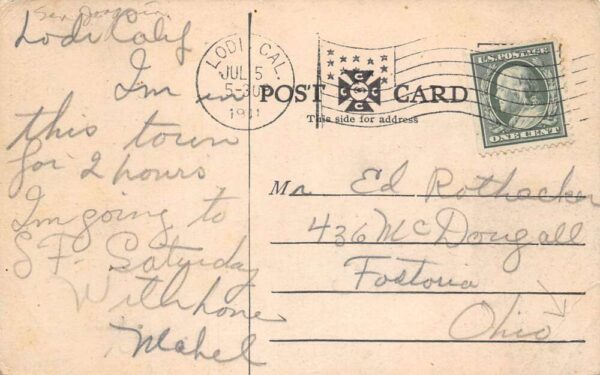 San Joaquin
Lodi Calif
Im in
this town
for 2 hours
Im going to
S F. Saturday
With love
Mabel
LODI, CAL.
JUL 5
5-30P
1911
U.S. POSTAGE
ONE CENT
POST CARD
This side for address
Mr Ed Rothecker
436 McDougall
Fostoria
Ohio